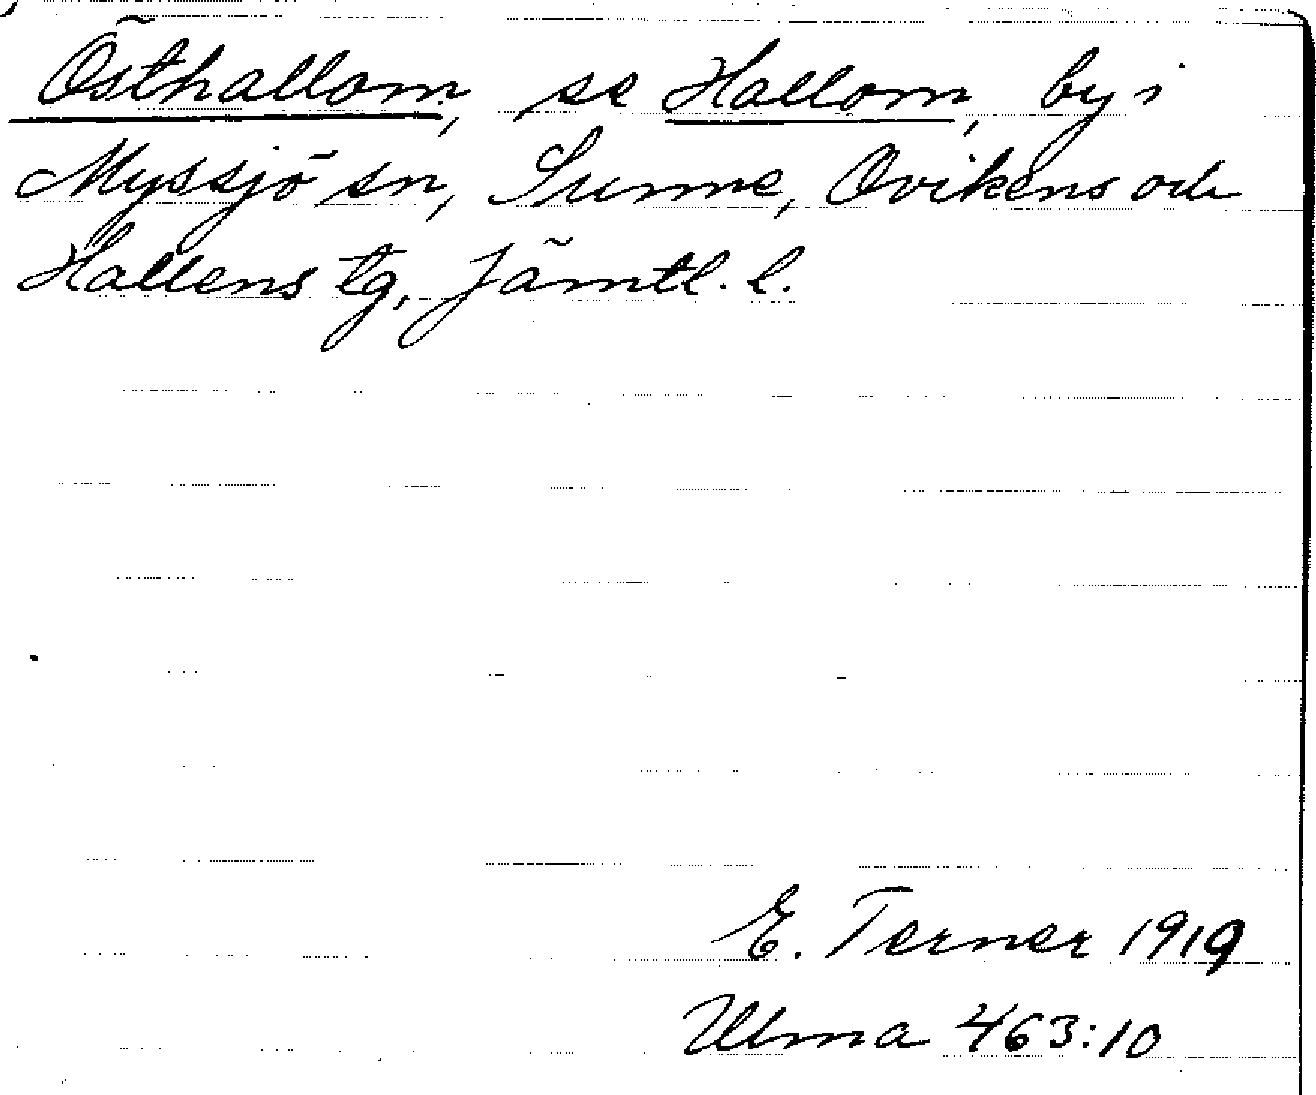 Östhallom, se Hallom, by i
Myssjö sn, Sunne, Ovikens och
Hallens tg, Jämtl. l.
E. Terner 1919
Ulma 463:10